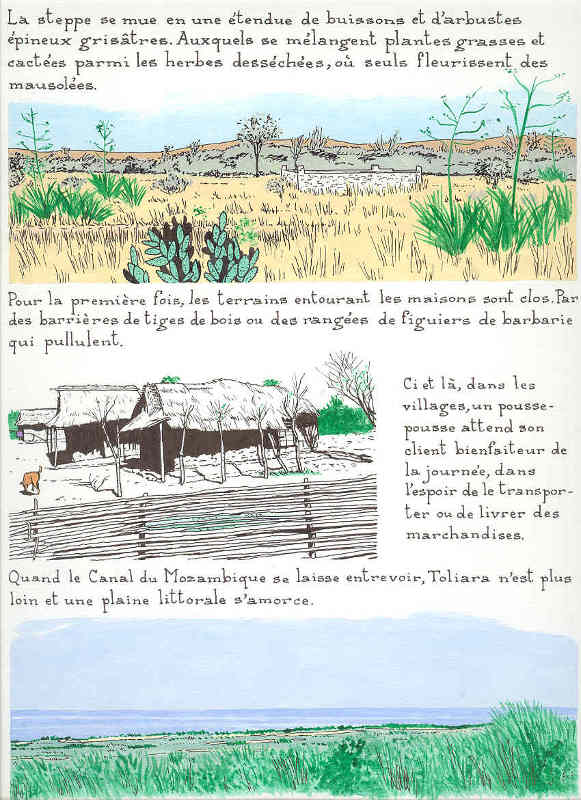 La steppe se mue en une étendue de buissons et d'arbustes
épineux grisâtres. Auxquels se mélangent plantes grasses et
cactées parmi les herbes desséchées, où seuls fleurissent des
mausolées.
Pour la première fois, les terrains entourant les maisons sont clos. Par
des barrières de tiges de bois ou des rangées de figuiers de barbarie
qui pullulent.
Ci et là, dans les
villages, un pousse-
pousse attend son
client bienfaiteur de
la journée, dans
l'espoir de le transpor-
ter ou de livrer des
marchandises.
Quand le Canal du Mozambique se laisse entrevoir, Toliara n'est plus
loin et une plaine littorale s'amorce.